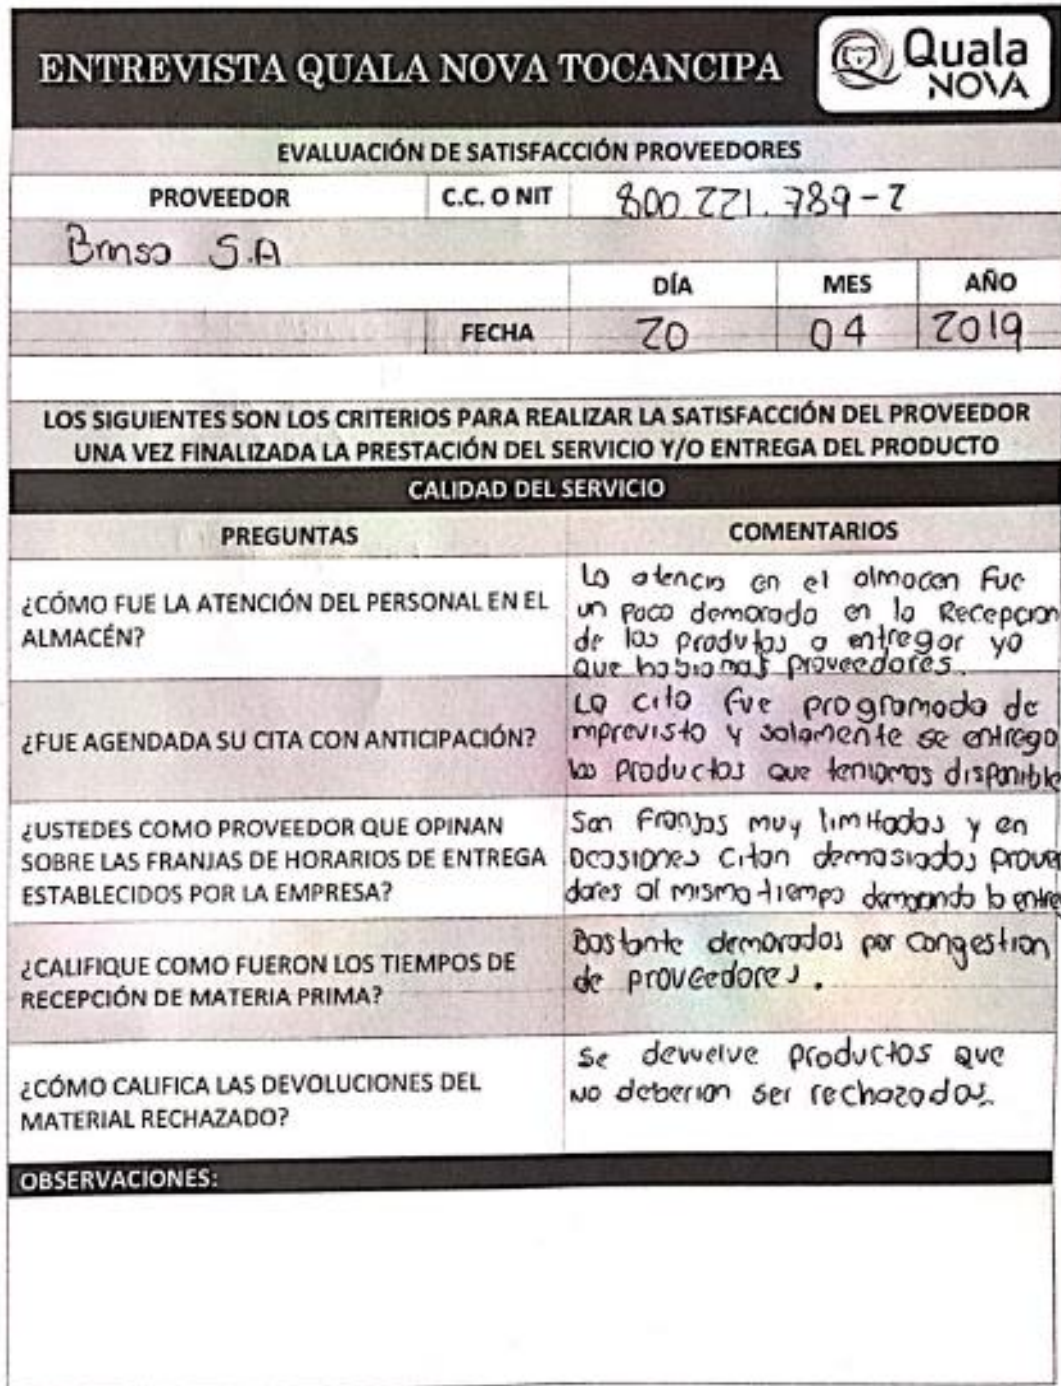 ENTREVISTA QUALA NOVA TOCANCIPA
Quala
NOVA
EVALUACIÓN DE SATISFACCIÓN PROVEEDORES
PROVEEDOR C.C. O NIT 800 221.789-2
S.A
DÍA MES AÑO
FECHA 20 04 2019
LOS SIGUIENTES SON LOS CRITERIOS PARA REALIZAR LA SATISFACCIÓN DEL PROVEEDOR
UNA VEZ FINALIZADA LA PRESTACIÓN DEL SERVICIO Y/O ENTREGA DEL PRODUCTO
CALIDAD DEL SERVICIO
PREGUNTAS COMENTARIOS
¿CÓMO FUE LA ATENCIÓN DEL PERSONAL EN EL
ALMACÉN?
La atencio en el almacen fue
un poco demorado en la Recepcion
de los produtos a entregar ya
que habia mas proveedores.
¿FUE AGENDADA SU CITA CON ANTICIPACIÓN?
La cita fue programada de
imprevisto y solamente se entrego
los productos que teniamos disponible
¿USTEDES COMO PROVEEDOR QUE OPINAN
SOBRE LAS FRANJAS DE HORARIOS DE ENTREGA
ESTABLECIDOS POR LA EMPRESA?
Son franjas muy limitadas y en
ocasiones citan demasiados provee
dores al mismo tiempo demorando la entre
¿CALIFIQUE COMO FUERON LOS TIEMPOS DE
RECEPCIÓN DE MATERIA PRIMA?
Bastante demorados por congestion
de proveedores.
¿CÓMO CALIFICA LAS DEVOLUCIONES DEL
MATERIAL RECHAZADO?
Se devuelve productos que
no deberian ser rechazados.
OBSERVACIONES: